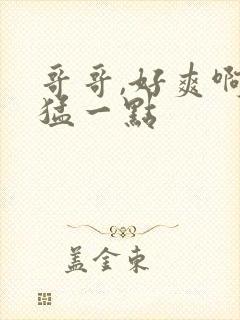 哥哥,好爽啊
猛一點
盖金東